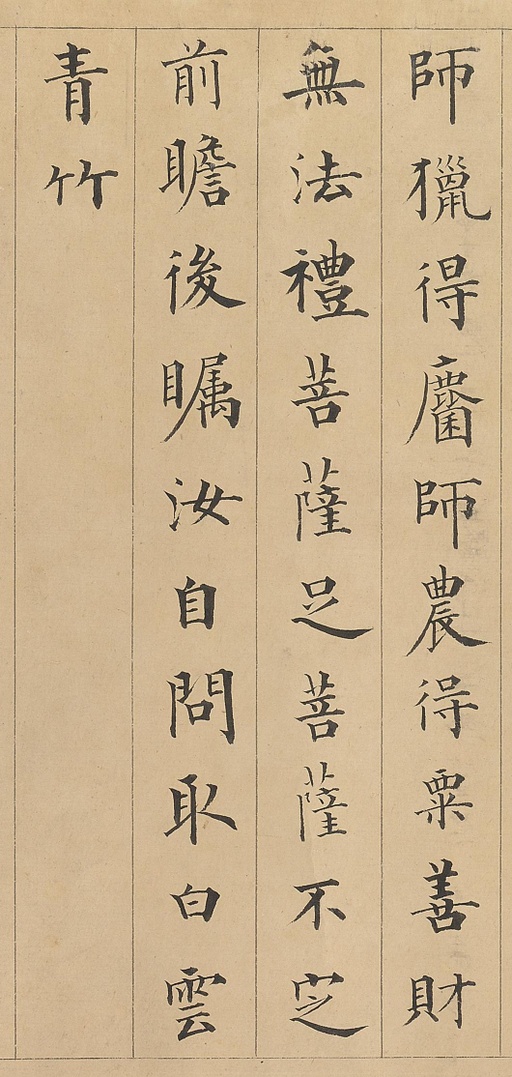 師獵得麕師農得粟善財
無法禮菩薩足菩薩不定
前瞻後矚汝自問取白雲
青竹